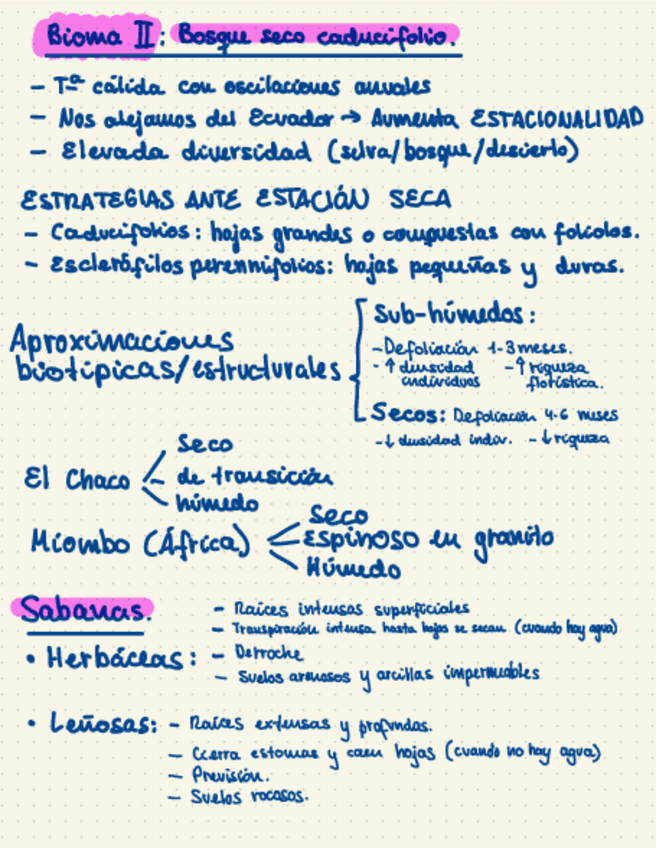 Bioma II: Bosque seco caducifolio.
- Tª cálida con oscilaciones anuales
- Nos alejamos del Ecuador → Aumenta ESTACIONALIDAD
- Elevada diversidad (selva/bosque/desierto)
ESTRATEGIAS ANTE ESTACIÓN SECA
- Caducifolios: hojas grandes o compuestas con folíolos.
- Esclerófilos perennifolios: hojas pequeñas y duras.
Aproximaciones
biotípicas/estructurales
Sub-húmedos:
- Defoliación 1-3 meses.
- ↑ densidad individuos
- ↑ riqueza florística.
Secos: Defoliación 4-6 meses
- ↓ densidad indiv. - ↓ riqueza
El Chaco
Seco
de transición
húmedo
Miombo (África)
Seco
Espinoso en granito
Húmedo
Sabanas.
• Herbáceas:
- Raíces intensas superficiales
- Transpiración intensa hasta hojas se secan (cuando hay agua)
- Derroche
- Suelos arenosos y arcillas impermeables
• Leñosas: - Raíces extensas y profundas.
- Cierra estomas y caen hojas (cuando no hay agua)
- Previsión.
- Suelos rocosos.